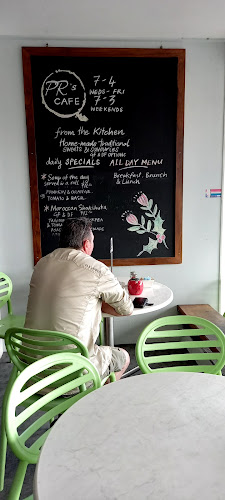 PR's
CAFE
7-4
WEDS-FRI
7-3
WEEKENDS
from the Kitchen
Home-made Traditional
SWEETS &
GF & DF OPTIONS
daily SPECIALS ALL DAY MENU
Breakfast, Brunch
& Lunch
* Soup of the day
served w a roll
TOMATO & BASIL
* Moroccan Shakshuka
GF & DF